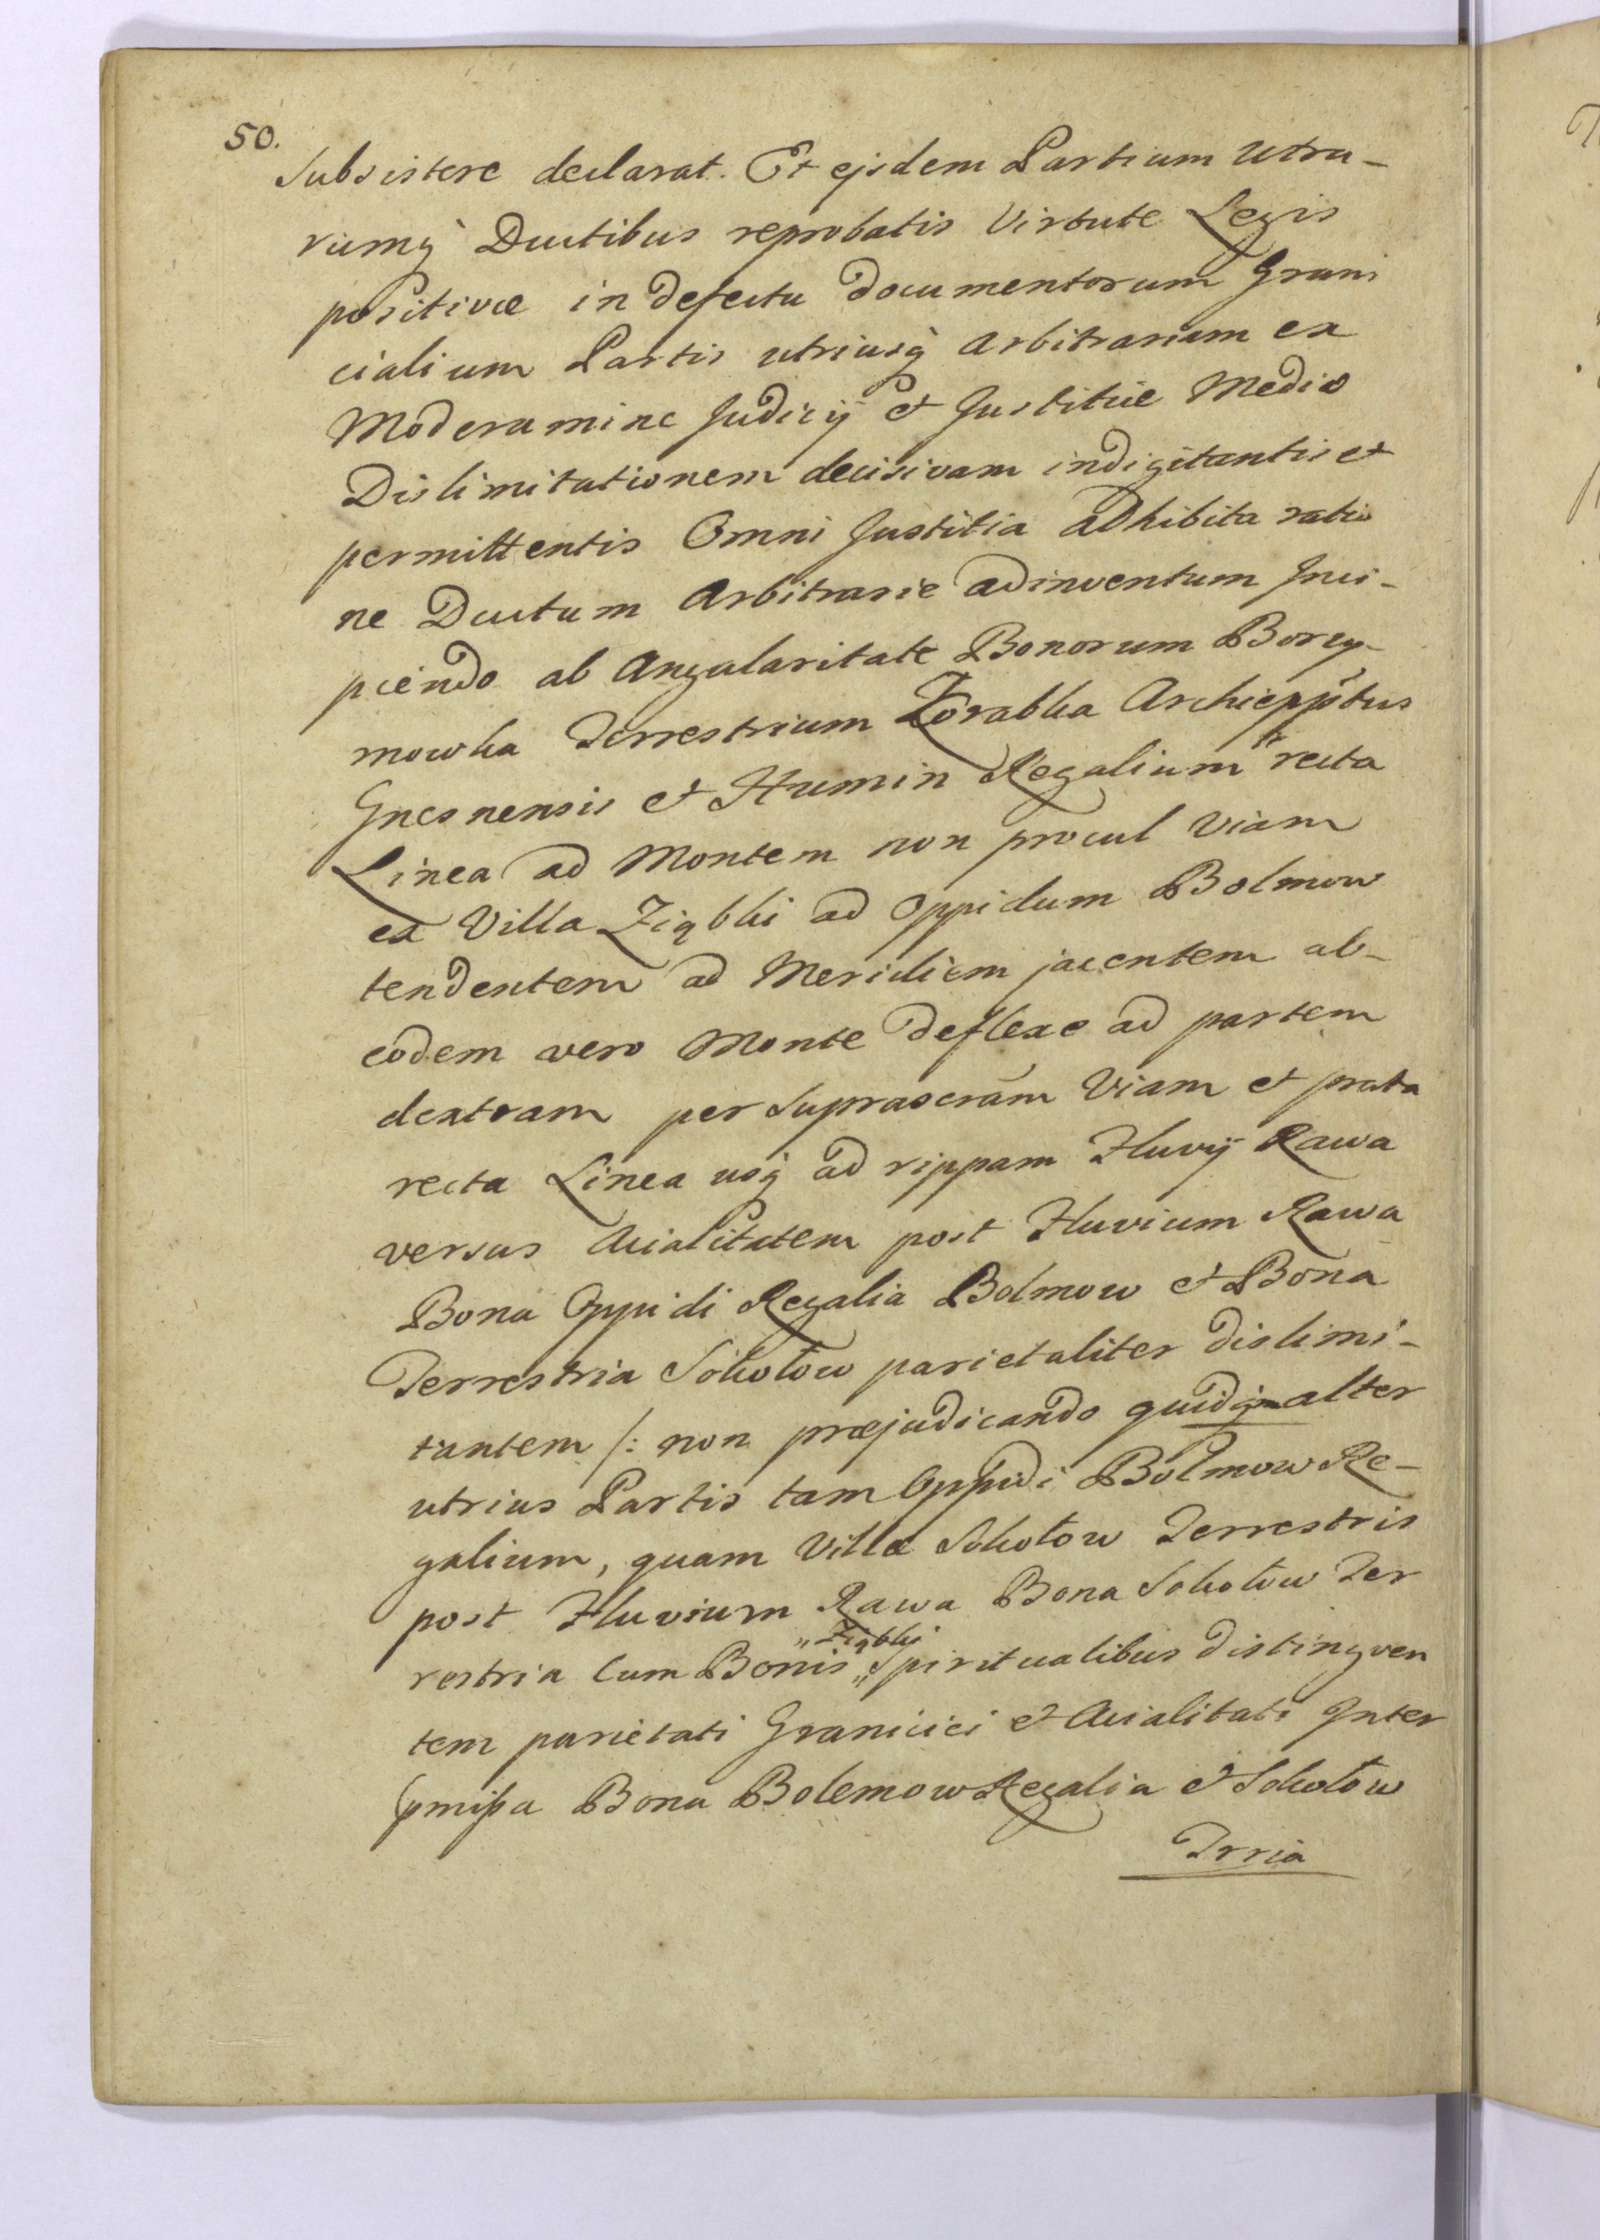 50.
Subsistere declarat. Et ejsdem Partium Utra-
rumq̀ Ductibus reprobatis Virtute Legis
positivæ in defectu documentorum Grani
cialium Partis utriusq̀ arbitrariam ex
Moderamine Judicij et Justitiæ Medio
Dislimitationem decisivam indigitantis et
permittentis Omni Justitia adhibita ratio
ne Ductum Arbitrarie adinventum Inci-
piendo ab Angularitate Bonorum Borzy-
mowka Terrestrium Zorabka Archieppṫus
Gnesnensis et Humin Regalium recta
Linea ad Montem non procul Viam
ex Villa Ziąbki ad Oppidum Bolmow
tendentem ad Meridiem jacentem ab-
eodem vero Monte deflexe ad partem
dextram per Suprascram̃ Viam et prata
recta Linea usq̀ ad rippam Fluvij Rawa
versus Acialitatem post Fluvium Rawa
Bona Oppidi Regalia Bolmow et Bona
Terrestria Sokołow parietaliter dislimi-
tantem /: non præjudicando quidq̃ alter
utrius Partis tam Oppidi Bolmow Re-
galium, quam Villæ Sokołow Terrestris
post Fluvium Rawa Bona Sokołow Ter
restria Cum Bonis „Ziąbki„ Spiritualibus distingven
tem parietati Granicici et Acialitati Inter
pmißa Bona Bolemow Regalia et Sokołow
Trria